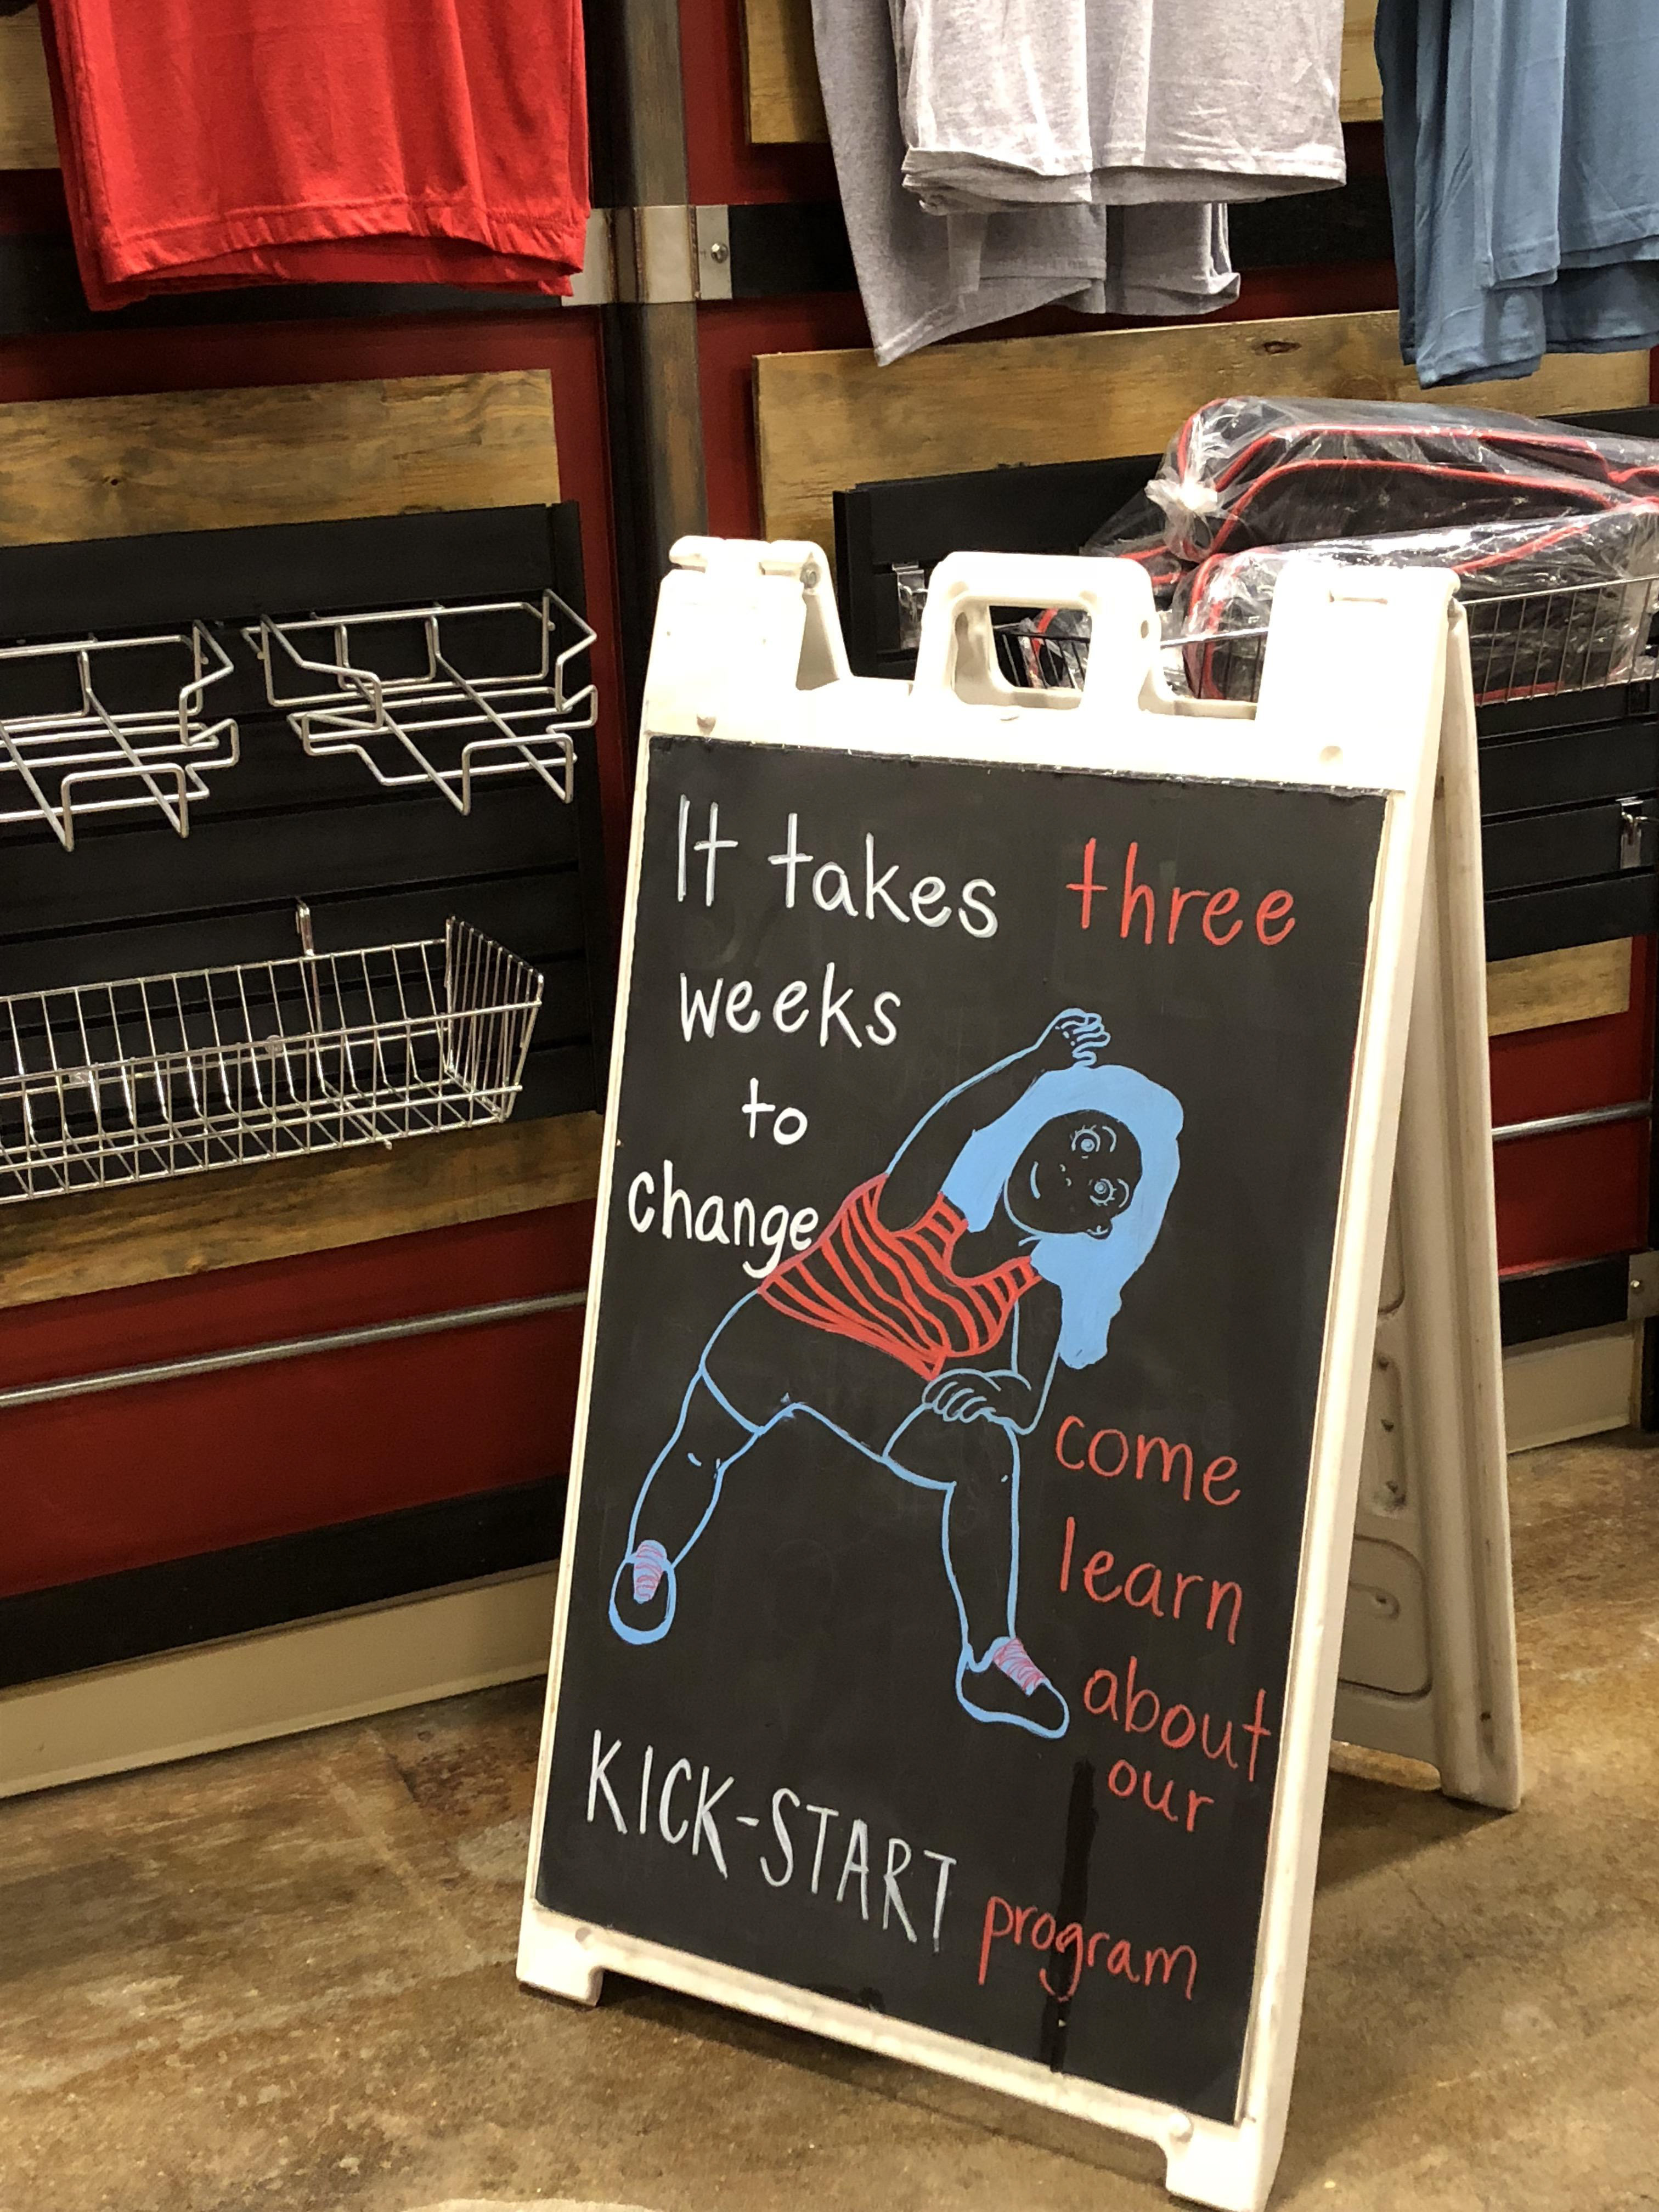 It takes three
weeks
to
change
come
learn
about
our
KICK-START program